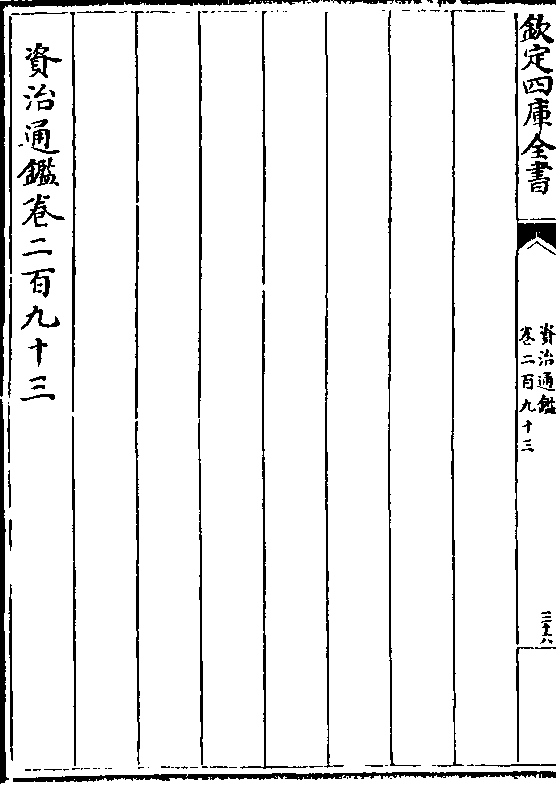 欽定四庫全書
資治通鑑
卷二百九十三
資治通鑑卷二百九十三